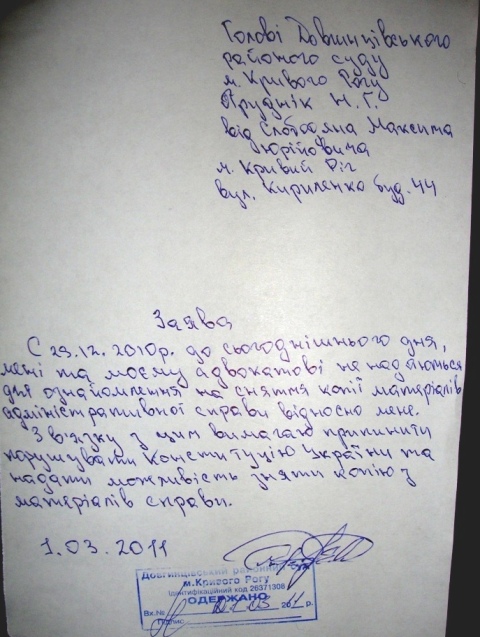 Голові Довгинцівського
районого суду
м. Кривого Рогу
Прудник Н. Г.
від Слободяна Максима
Юрійовича
м. Кривий Ріг
вул. Кириленко буд. 44
Заява
С 29.12. 2010р. до сьогоднішнього дня,
мені та моєму адвокатові не надаються
для ознайомлення на сняття копії матеріалів
адміністративної справи відносно мене.
З в'язку з цим вимагаю припинити
порушувати Конституцію України та
надати можливість зняти копію з
матеріалів справи.
1.03.2011
Довгинцівський районний
м.Кривого Рогу
Ідентифікаційний код 26371308
ОДЕРЖАНО
Вх.№ 01 03 2011 р.
Підпис